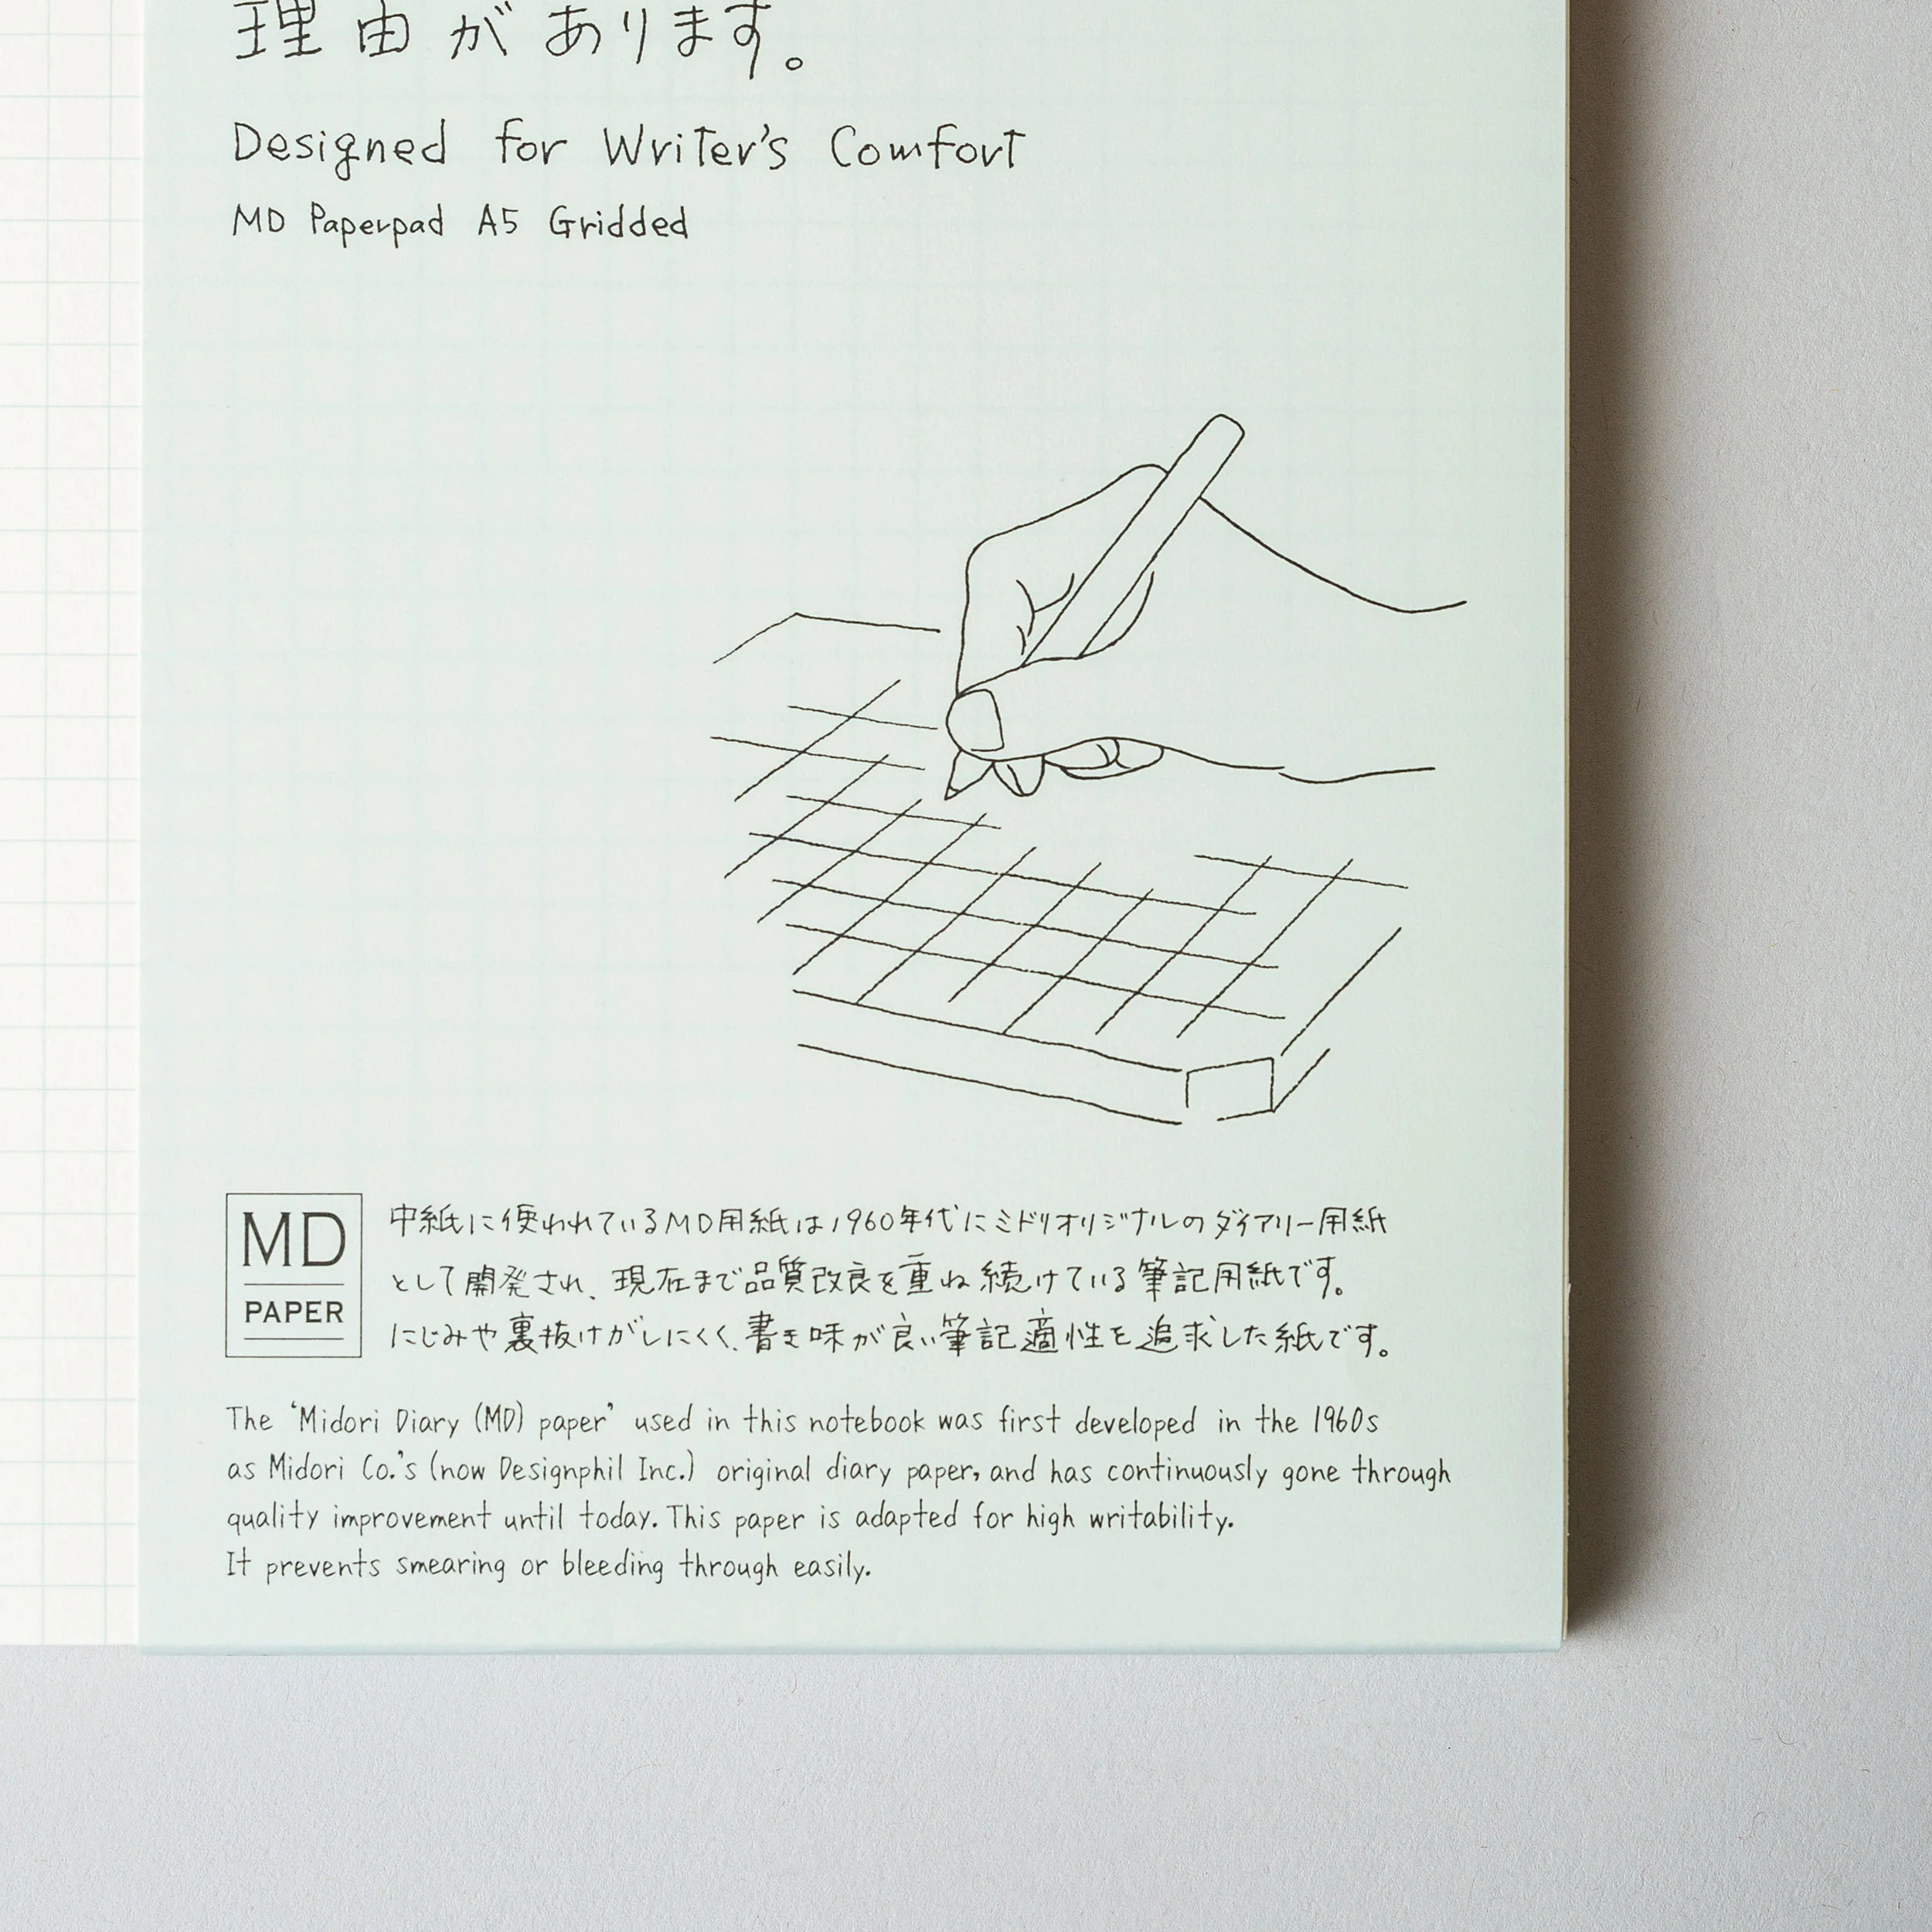 理由があります。
Designed for Writer's Comfort
MD Paperpad A5 Gridded
MD
PAPER
中紙に使われているMD用紙は1960年代にミドリオリジナルのダイアリー用紙
として開発され、現在まで品質改良を重ね続けている筆記用紙です。
にじみや裏抜けがしにくく、書き味が良い筆記適性を追求した紙です。
The 'Midori Diary (MD) paper' used in this notebook was first developed in the 1960s
as Midori Co.'s (now Designphil Inc.) original diary paper, and has continuously gone through
quality improvement until today. This paper is adapted for high writability.
It prevents smearing or bleeding through easily.